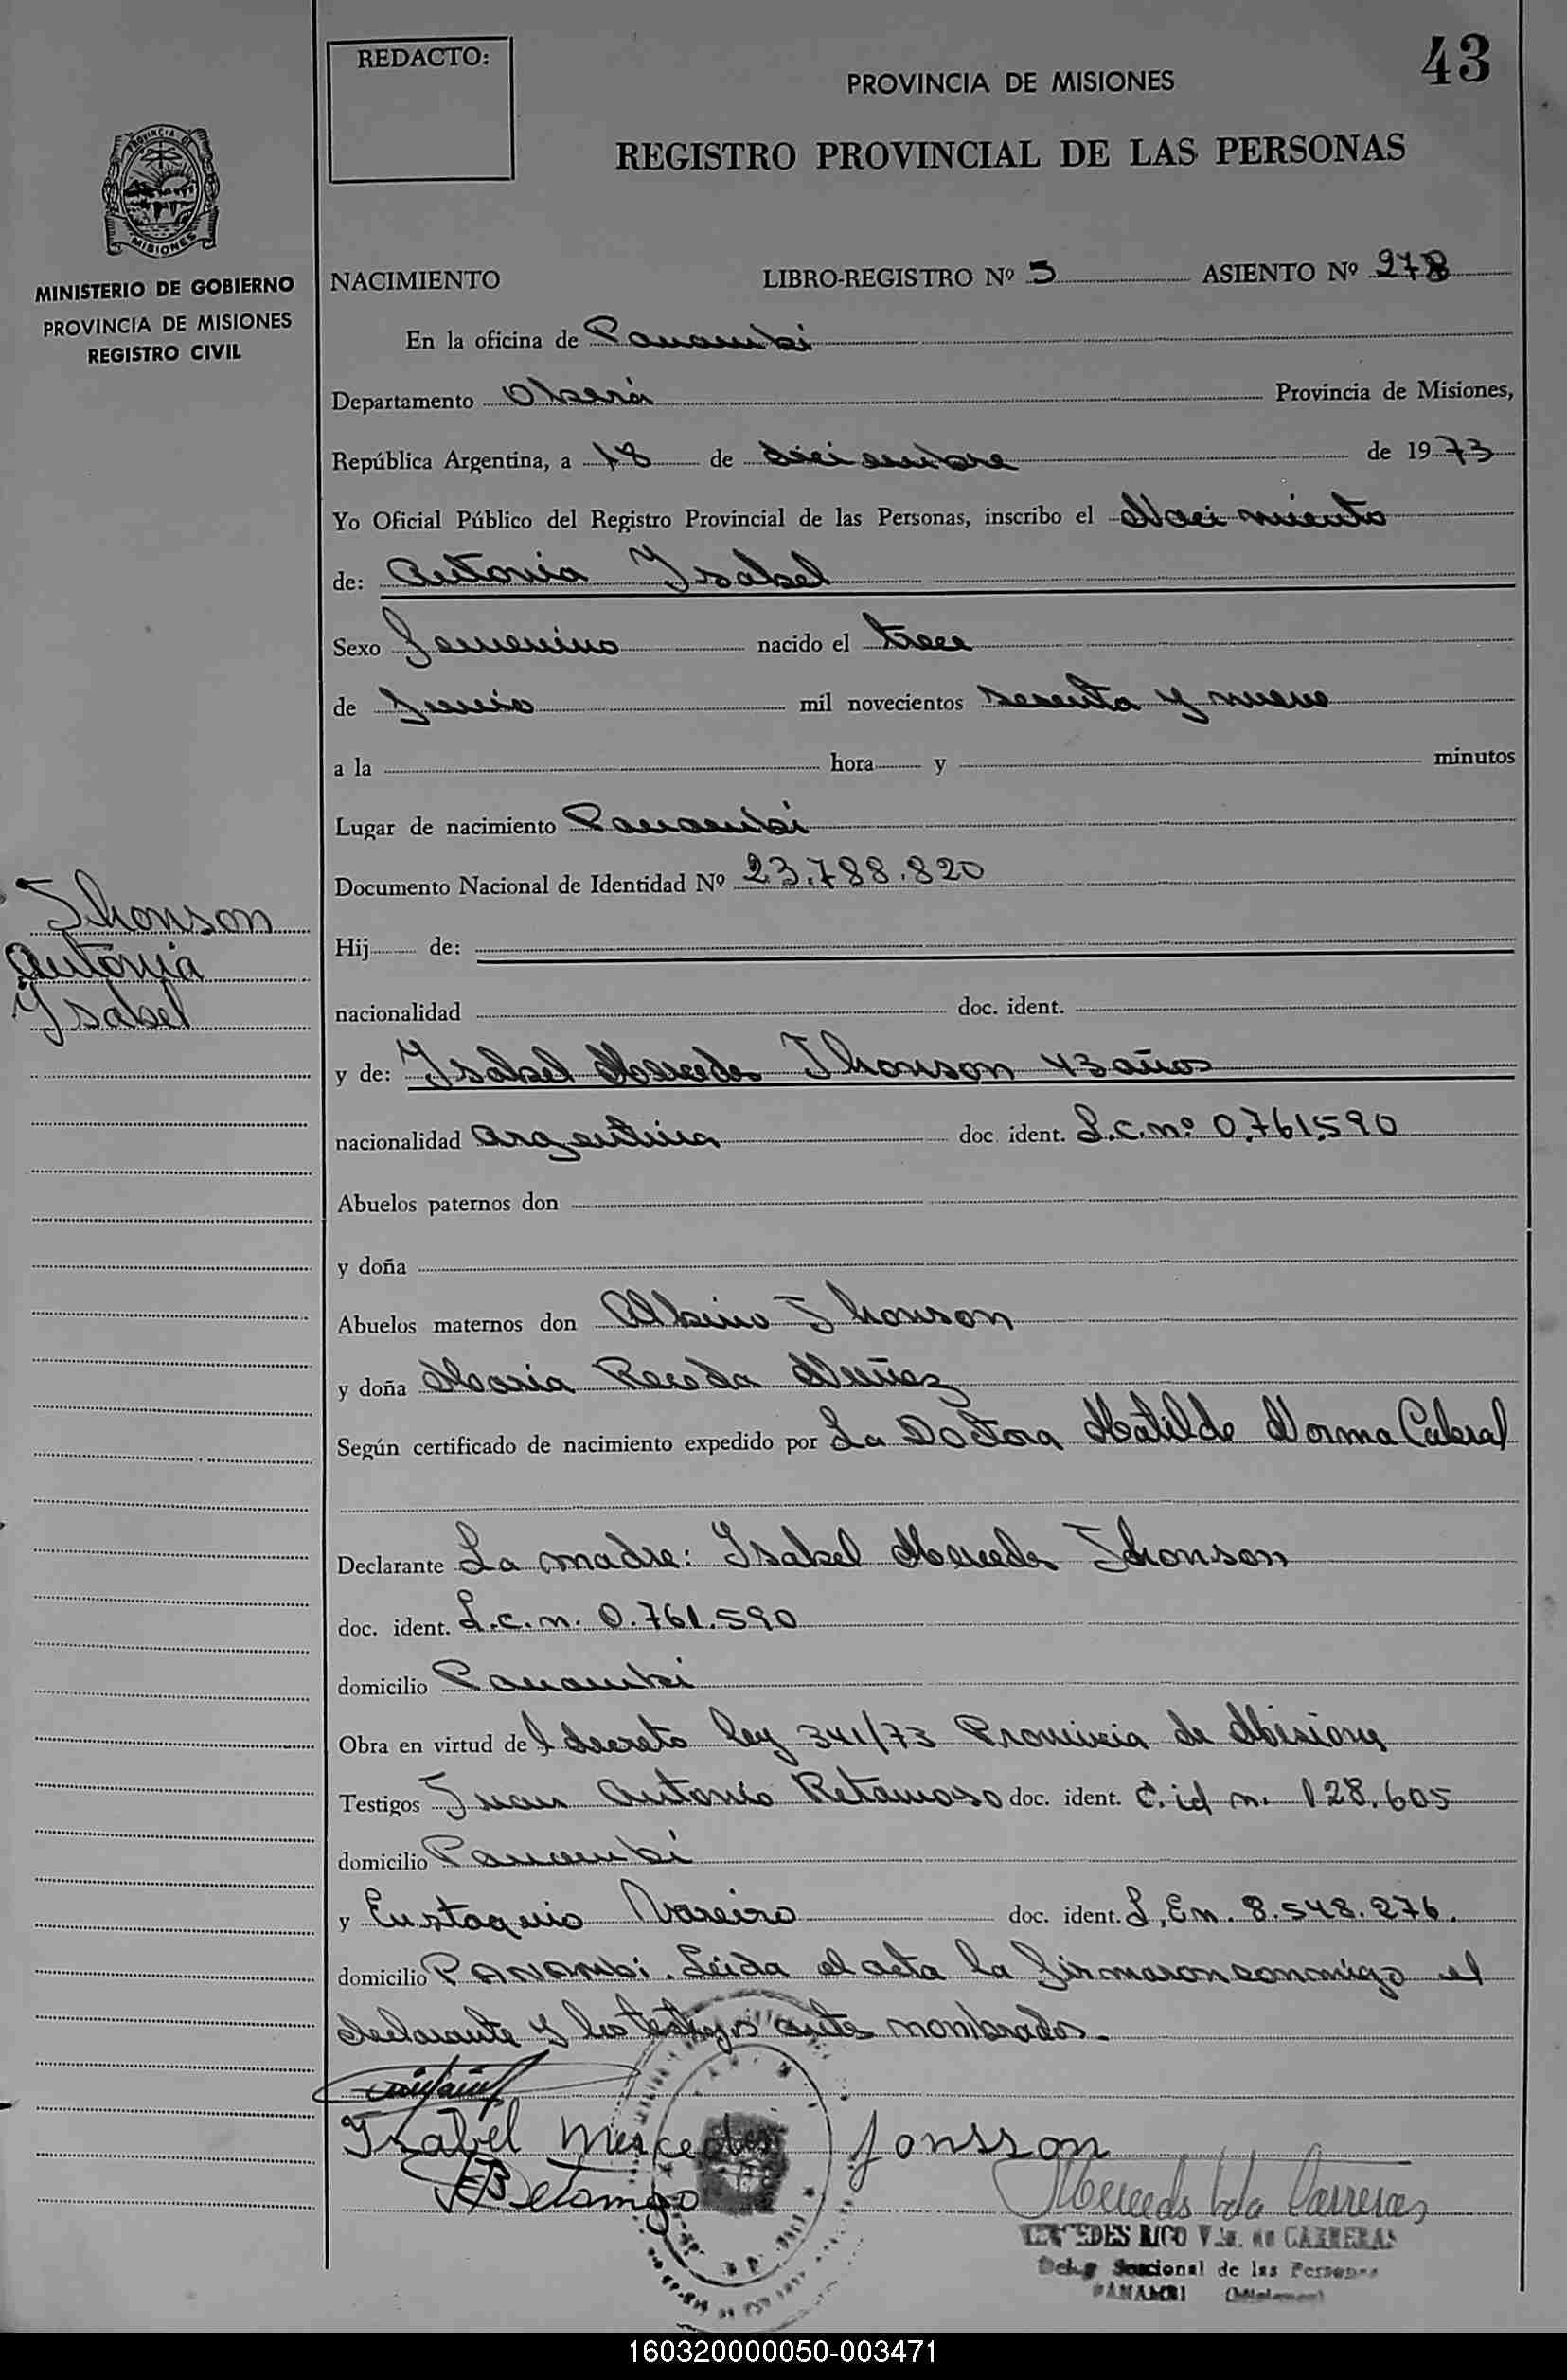 43
REDACTO:
PROVINCIA DE MISIONES
REGISTRO PROVINCIAL DE LAS PERSONAS
PROVINCIA DE
MISIONES
MINISTERIO DE GOBIERNO
PROVINCIA DE MISIONES
REGISTRO CIVIL
NACIMIENTO LIBRO-REGISTRO Nº 5 ASIENTO Nº 278
En la oficina de Panambi
Departamento Oberá Provincia de Misiones,
República Argentina, a 18 de diciembre de 1973
Yo Oficial Público del Registro Provincial de las Personas, inscribo el Nacimiento
de: Antonia Ysabel
Sexo Femenino nacido el trece
de Junio mil novecientos sesenta y nueve
a la hora y minutos
Lugar de nacimiento Panambi
Documento Nacional de Identidad Nº 23.788.820
Thonson
Antonia
Ysabel
Hij de:
nacionalidad doc. ident.
y de: Ysabel Mercedes Thonson 43 años
nacionalidad argentina doc ident. L.C.nº 0,761,590
Abuelos paternos don
y doña
Abuelos maternos don Albino Thonson
y doña Maria Nuñez
Según certificado de nacimiento expedido por La Doctora Matilde Norma Cabral
Declarante La madre: Ysabel Mercedes Thonson
doc. ident. L.C.n. 0.761.590
domicilio Panambi
Obra en virtud del decreto ley 341/73 Provincia de Misiones
Testigos Juan Antonio Retamoso doc. ident. C.id n. 128.605
domicilio Panambi
y Eustaquio Vareiro doc. ident. L,En. 8.548.276.
domicilio Panambi. Leida el acta la firmaron conmigo el
declarante y los testigos antes nombrados.
Isabel Mercedes Jonsson
MERCEDES RICO Vda. de CARRERAS
Deleg Seccional de las Personas
PANAMBI (Misiones)
160320000050-003471